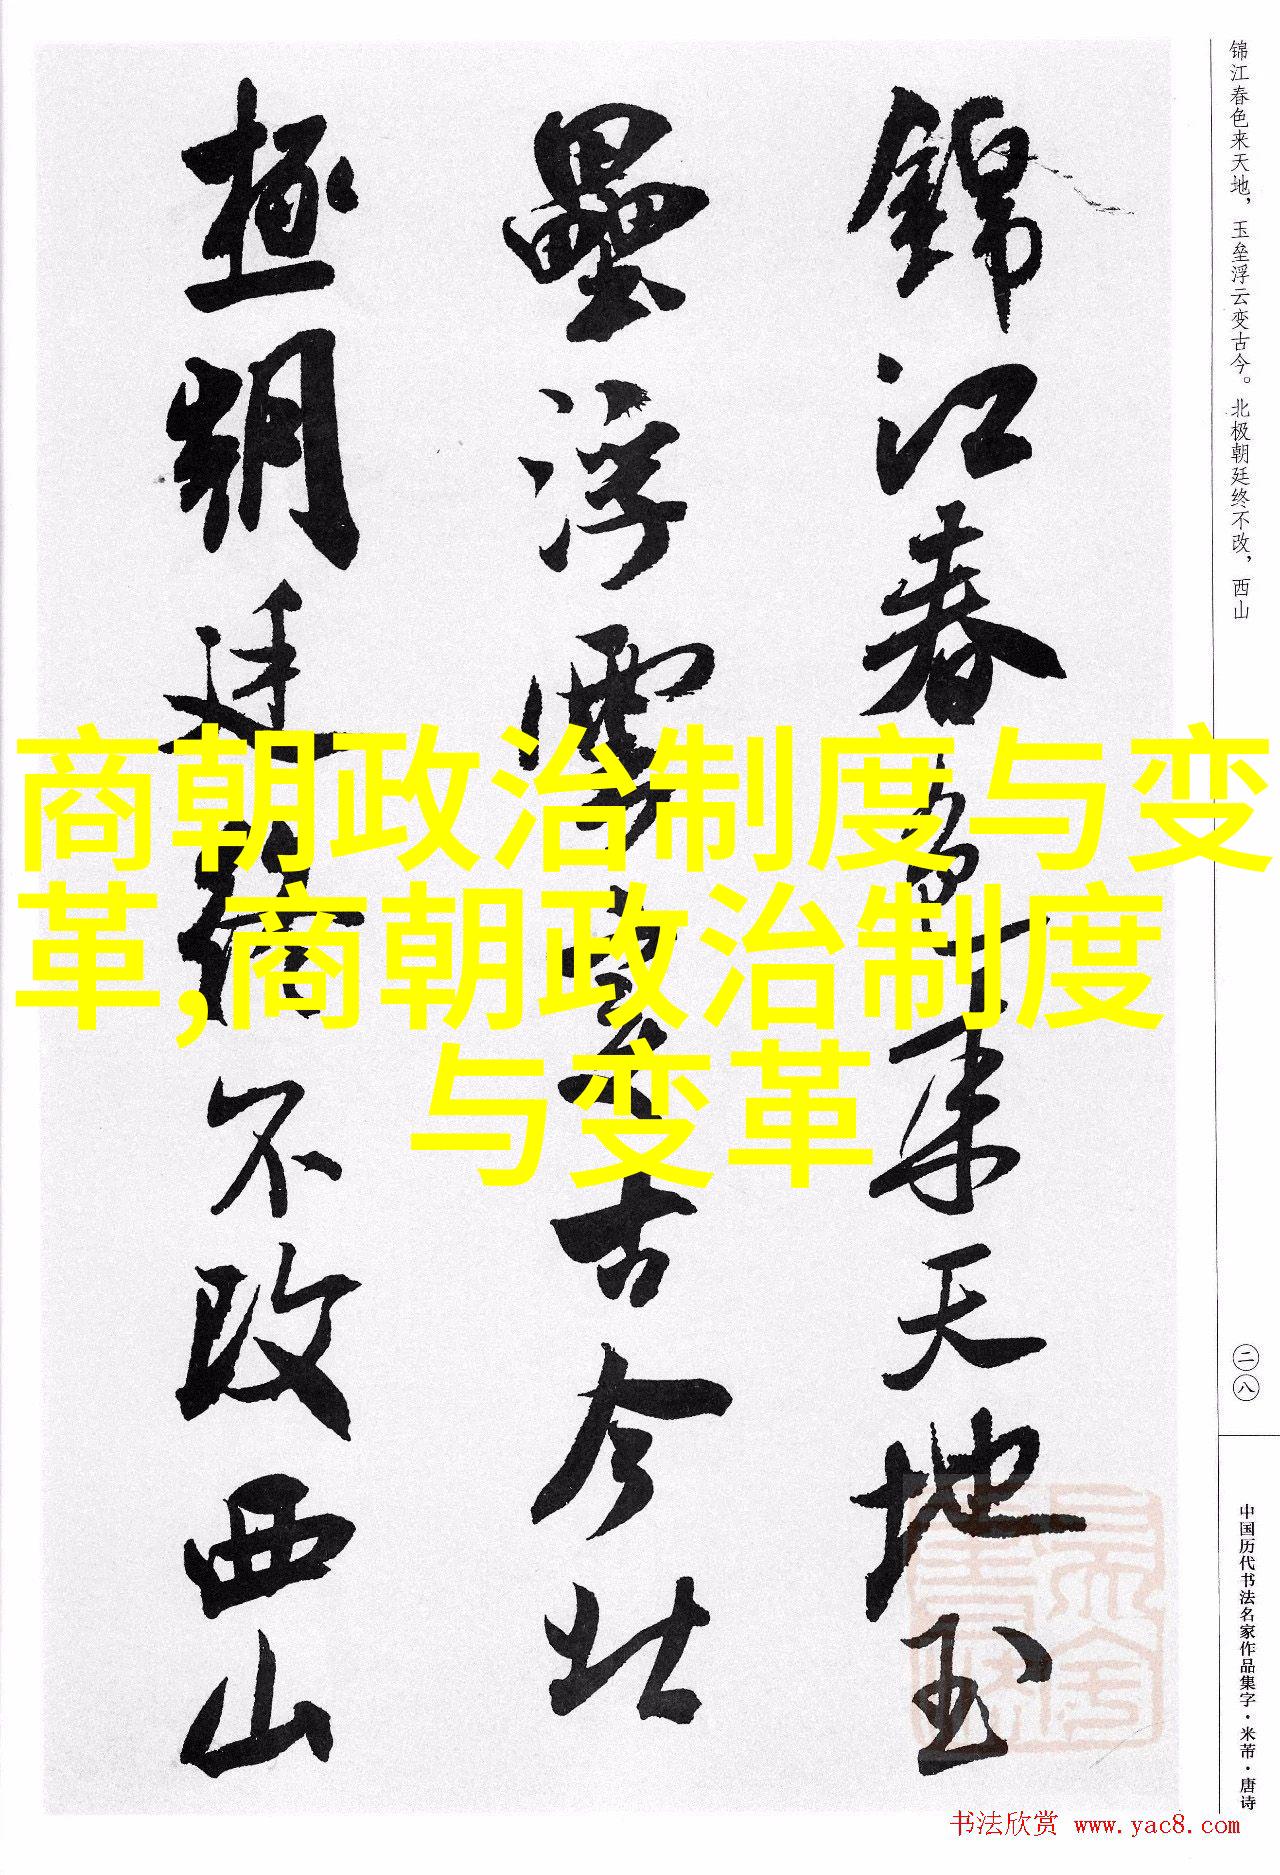 锦江春色来天地，玉垒浮云变古今。北极朝廷终不改，西山
錦江春色来天地玉
壘浮雲變古今北
極朝廷終不改西山
商朝政治制度与变
革,商朝政治制度
与变革
二八
中国历代书法名家作品集字·米芾·唐诗
书法欣赏 www.yac8.com